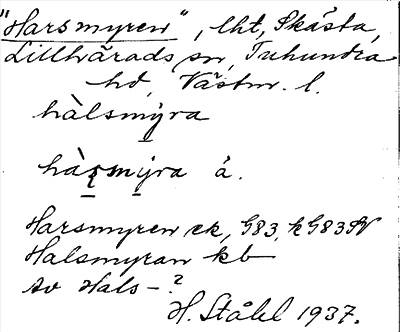 "Harsmyren", lht, Skästa,
Lillhärads sn, Tuhundra
hd, Västm. l.
hàlsmýra
hàṣmýra å.
Harsmyren ek, G83, k G83 SV
Halsmyran kb
Av Hals-?
H. Ståhl 1937.